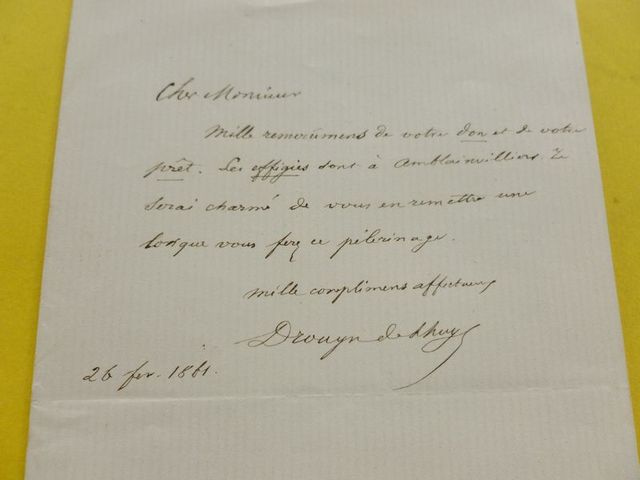 Cher Monsieur
Mille remercimens de votre don et de votre
prêt. Les effigies sont à Amblainvilliers. Je
serai charmé de vous en remettre une
lorsque vous ferez ce pélerinage.
mille complimens affectueux
Drouyn de Lhuys
26 fev. 1861.